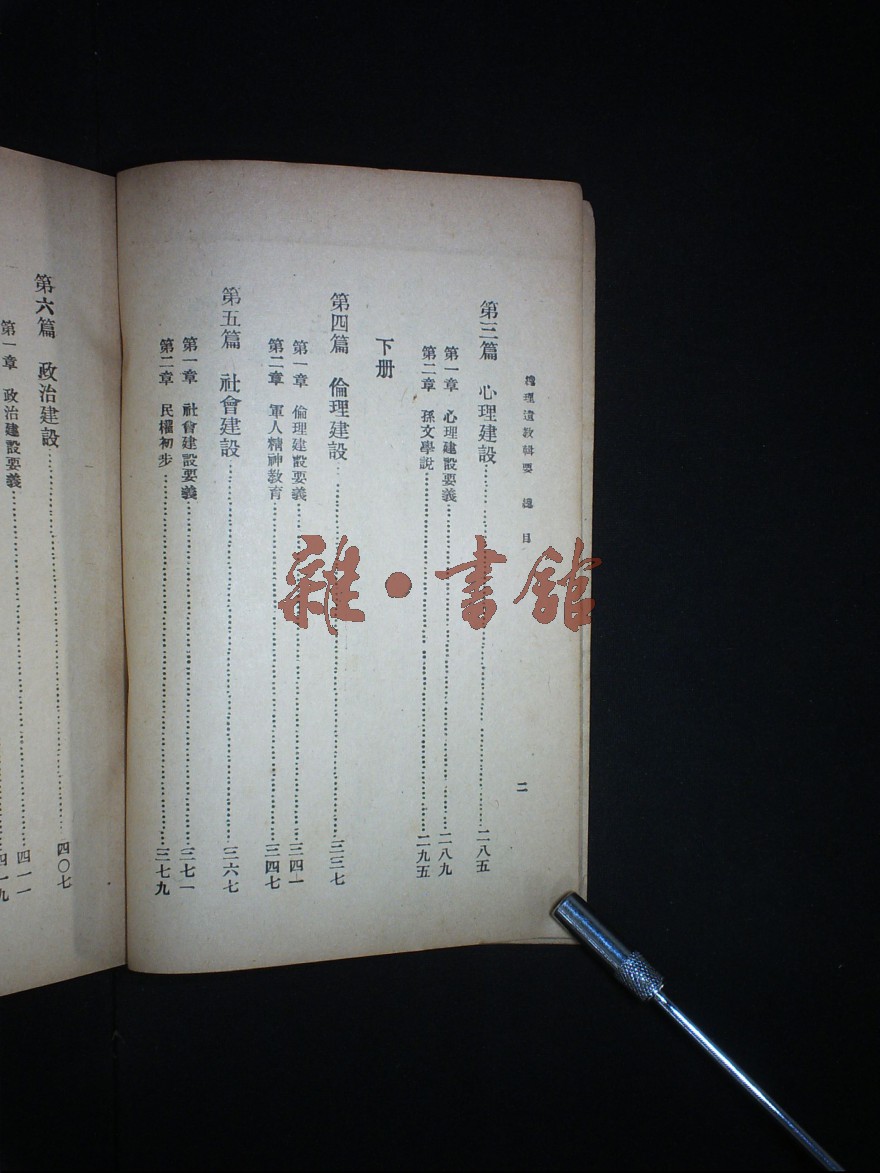 總理遺教輯要 總目 二
第三篇 心理建設 二八五
第一章 心理建設要義 二八九
第二章 孫文學說 二九五
下册
第四篇 倫理建設 三三七
第一章 倫理建設要義 三四一
第二章 軍人精神教育 三四七
第五篇 社會建設 三六七
第一章 社會建設要義 三七一
第二章 民權初步 三七九
第六篇 政治建設 四〇七
第一章 政治建設要義 四一一
四一九
雜·書館